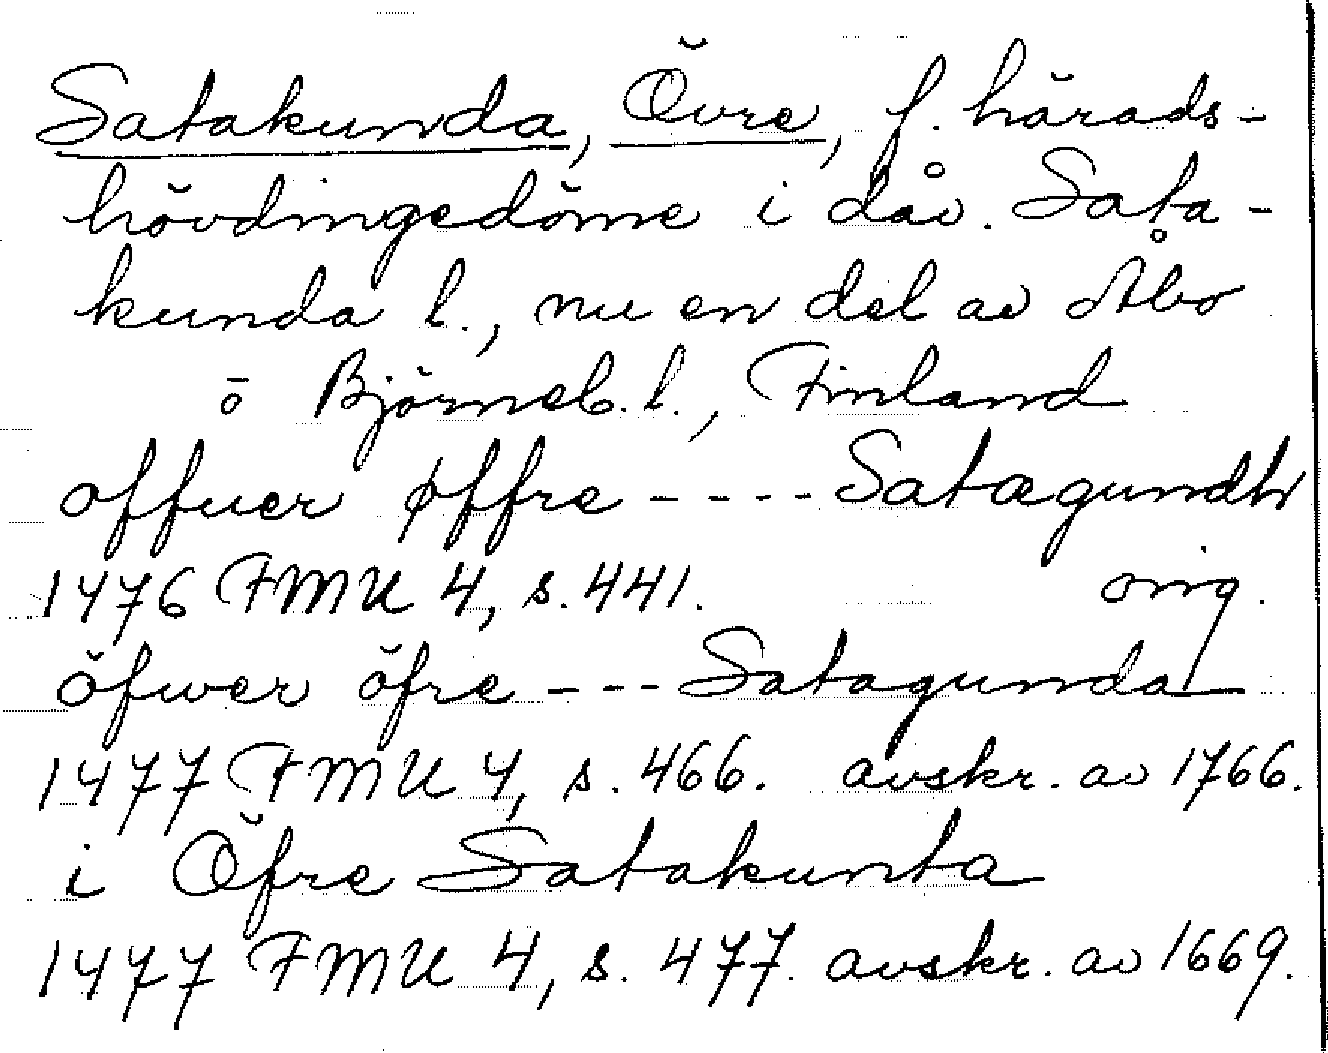 Satakunda, Övre, f. härads-
hövdingedöme i dåv. Sata-
kunda l., nu en del av Åbo
o Björneb. l., Finland
offuer øffre ---- Satagundh
1476 FMU 4, s. 441. orig.
öfwer öfre --- Satagunda
1477 FMU 4, s. 466. avskr. av 1766.
i Öfre Satakunta
1477 FMU 4, s. 477. avskr. av 1669.